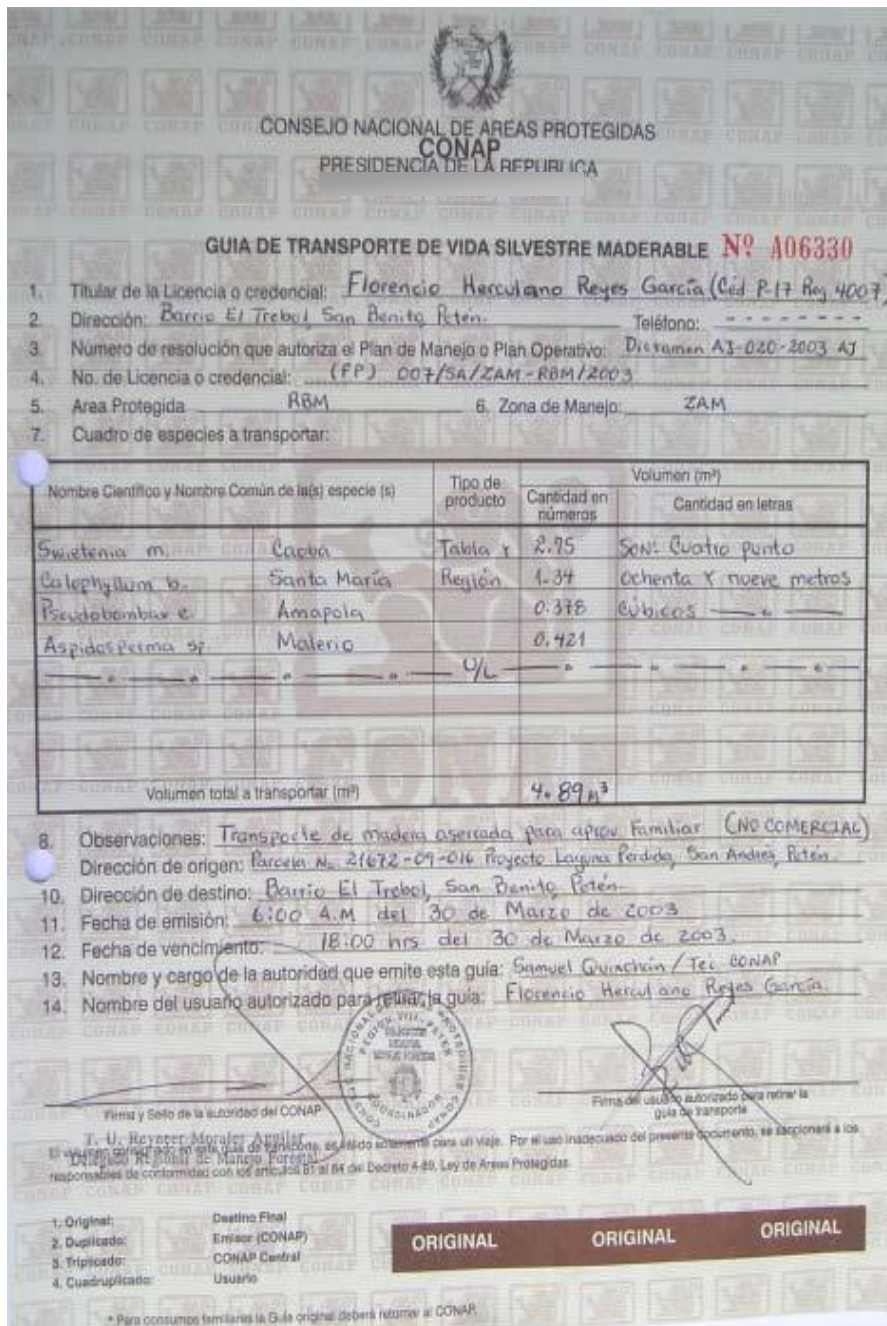 CONSEJO NACIONAL DE AREAS PROTEGIDAS
CONAP
PRESIDENCIA DE LA REPUBLICA
GUIA DE TRANSPORTE DE VIDA SILVESTRE MADERABLE Nº A06330
1. Titular de la Licencia o credencial: Florencio Herculano Reyes García (Céd P-17 Reg 4007)
2. Dirección: Barrio El Trebol, San Benito Petén. Teléfono: - - - - - - - -
3. Número de resolución que autoriza el Plan de Manejo o Plan Operativo: Dictamen AJ-020-2003 AJ
4. No. de Licencia o credencial: (FP) 007/SA/ZAM-RBM/2003
5. Area Protegida RBM 6. Zona de Manejo: ZAM
7. Cuadro de especies a transportar:
Nombre Científico y Nombre Común de la(s) especie (s) Tipo de producto Volumen (m³)
Cantidad en números Cantidad en letras
Swietenia m. Caoba Tabla y 2.75 SON: Cuatro punto
Calophyllum b. Santa María Reglón 1.34 ochenta y nueve metros
Pseudobombax e. Amapola 0.378 cúbicos
Aspidosperma sp. Malerio 0.421
U/L
Volumen total a transportar (m³) 4.89 m³
8. Observaciones: Transporte de madera aserrada para aprov. Familiar (NO COMERCIAL)
Dirección de origen: Parcela No. 21672-09-016 Proyecto Laguna Perdida, San Andrés, Petén.
10. Dirección de destino: Barrio El Trebol, San Benito, Petén.
11. Fecha de emisión: 6:00 A.M del 30 de Marzo de 2003
12. Fecha de vencimiento: 18:00 hrs. del 30 de Marzo de 2003.
13. Nombre y cargo de la autoridad que emite esta guía: Samuel Quixchán / Tec CONAP
14. Nombre del usuario autorizado para retirar la guía: Florencio Herculano Reyes García.
Firma y Sello de la autoridad del CONAP
Firma del usuario autorizado para retirar la
guía de transporte
T. U. Reyneer Morales Aguilar
Delegado Regional de Manejo Forestal
El volumen consignado en esta guía de transporte, es válido solamente para un viaje. Por el uso inadecuado del presente documento, se sancionará a los
responsables de conformidad con los artículos 81 al 84 del Decreto 4-89, Ley de Areas Protegidas.
1. Original: Destino Final
2. Duplicado: Emisor (CONAP)
3. Triplicado: CONAP Central
4. Cuadruplicado: Usuario
ORIGINAL ORIGINAL ORIGINAL
* Para consumos familiares la Guía original deberá retornar al CONAP.